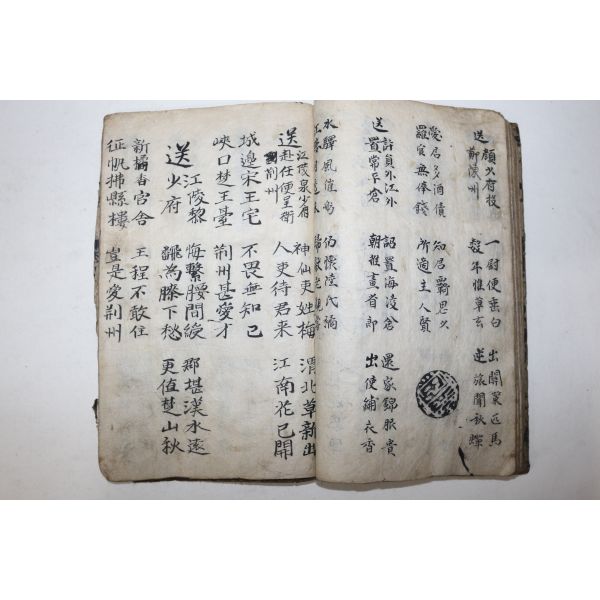 送
顏少府投
鄭陳州
一尉便垂白
數年惟草玄
出關策匹馬
逆旅聞秋蟬
愛君多酒債
羅官無俸錢
知君覊思久
所適主人賢
送
許員外江外
置常平倉
詔置海陵倉
朝推畫省郎
還家錦服貴
出使繡衣香
水驛風催舫
仍懷陸氏橘
送
江陵泉少府
赴任便呈衛
荊州
神仙吏姓梅
人吏待君来
渭北草新出
江南花已開
城邊宋玉宅
峽口楚王臺
不畏無知己
荆州甚愛才
送
江陵黎
少府
悔繫腰間綬
飜為膝下愁
那堪漢水遠
更值楚山秋
新橘香官舎
征帆拂縣樓
王程不敢住
豈是愛荆州